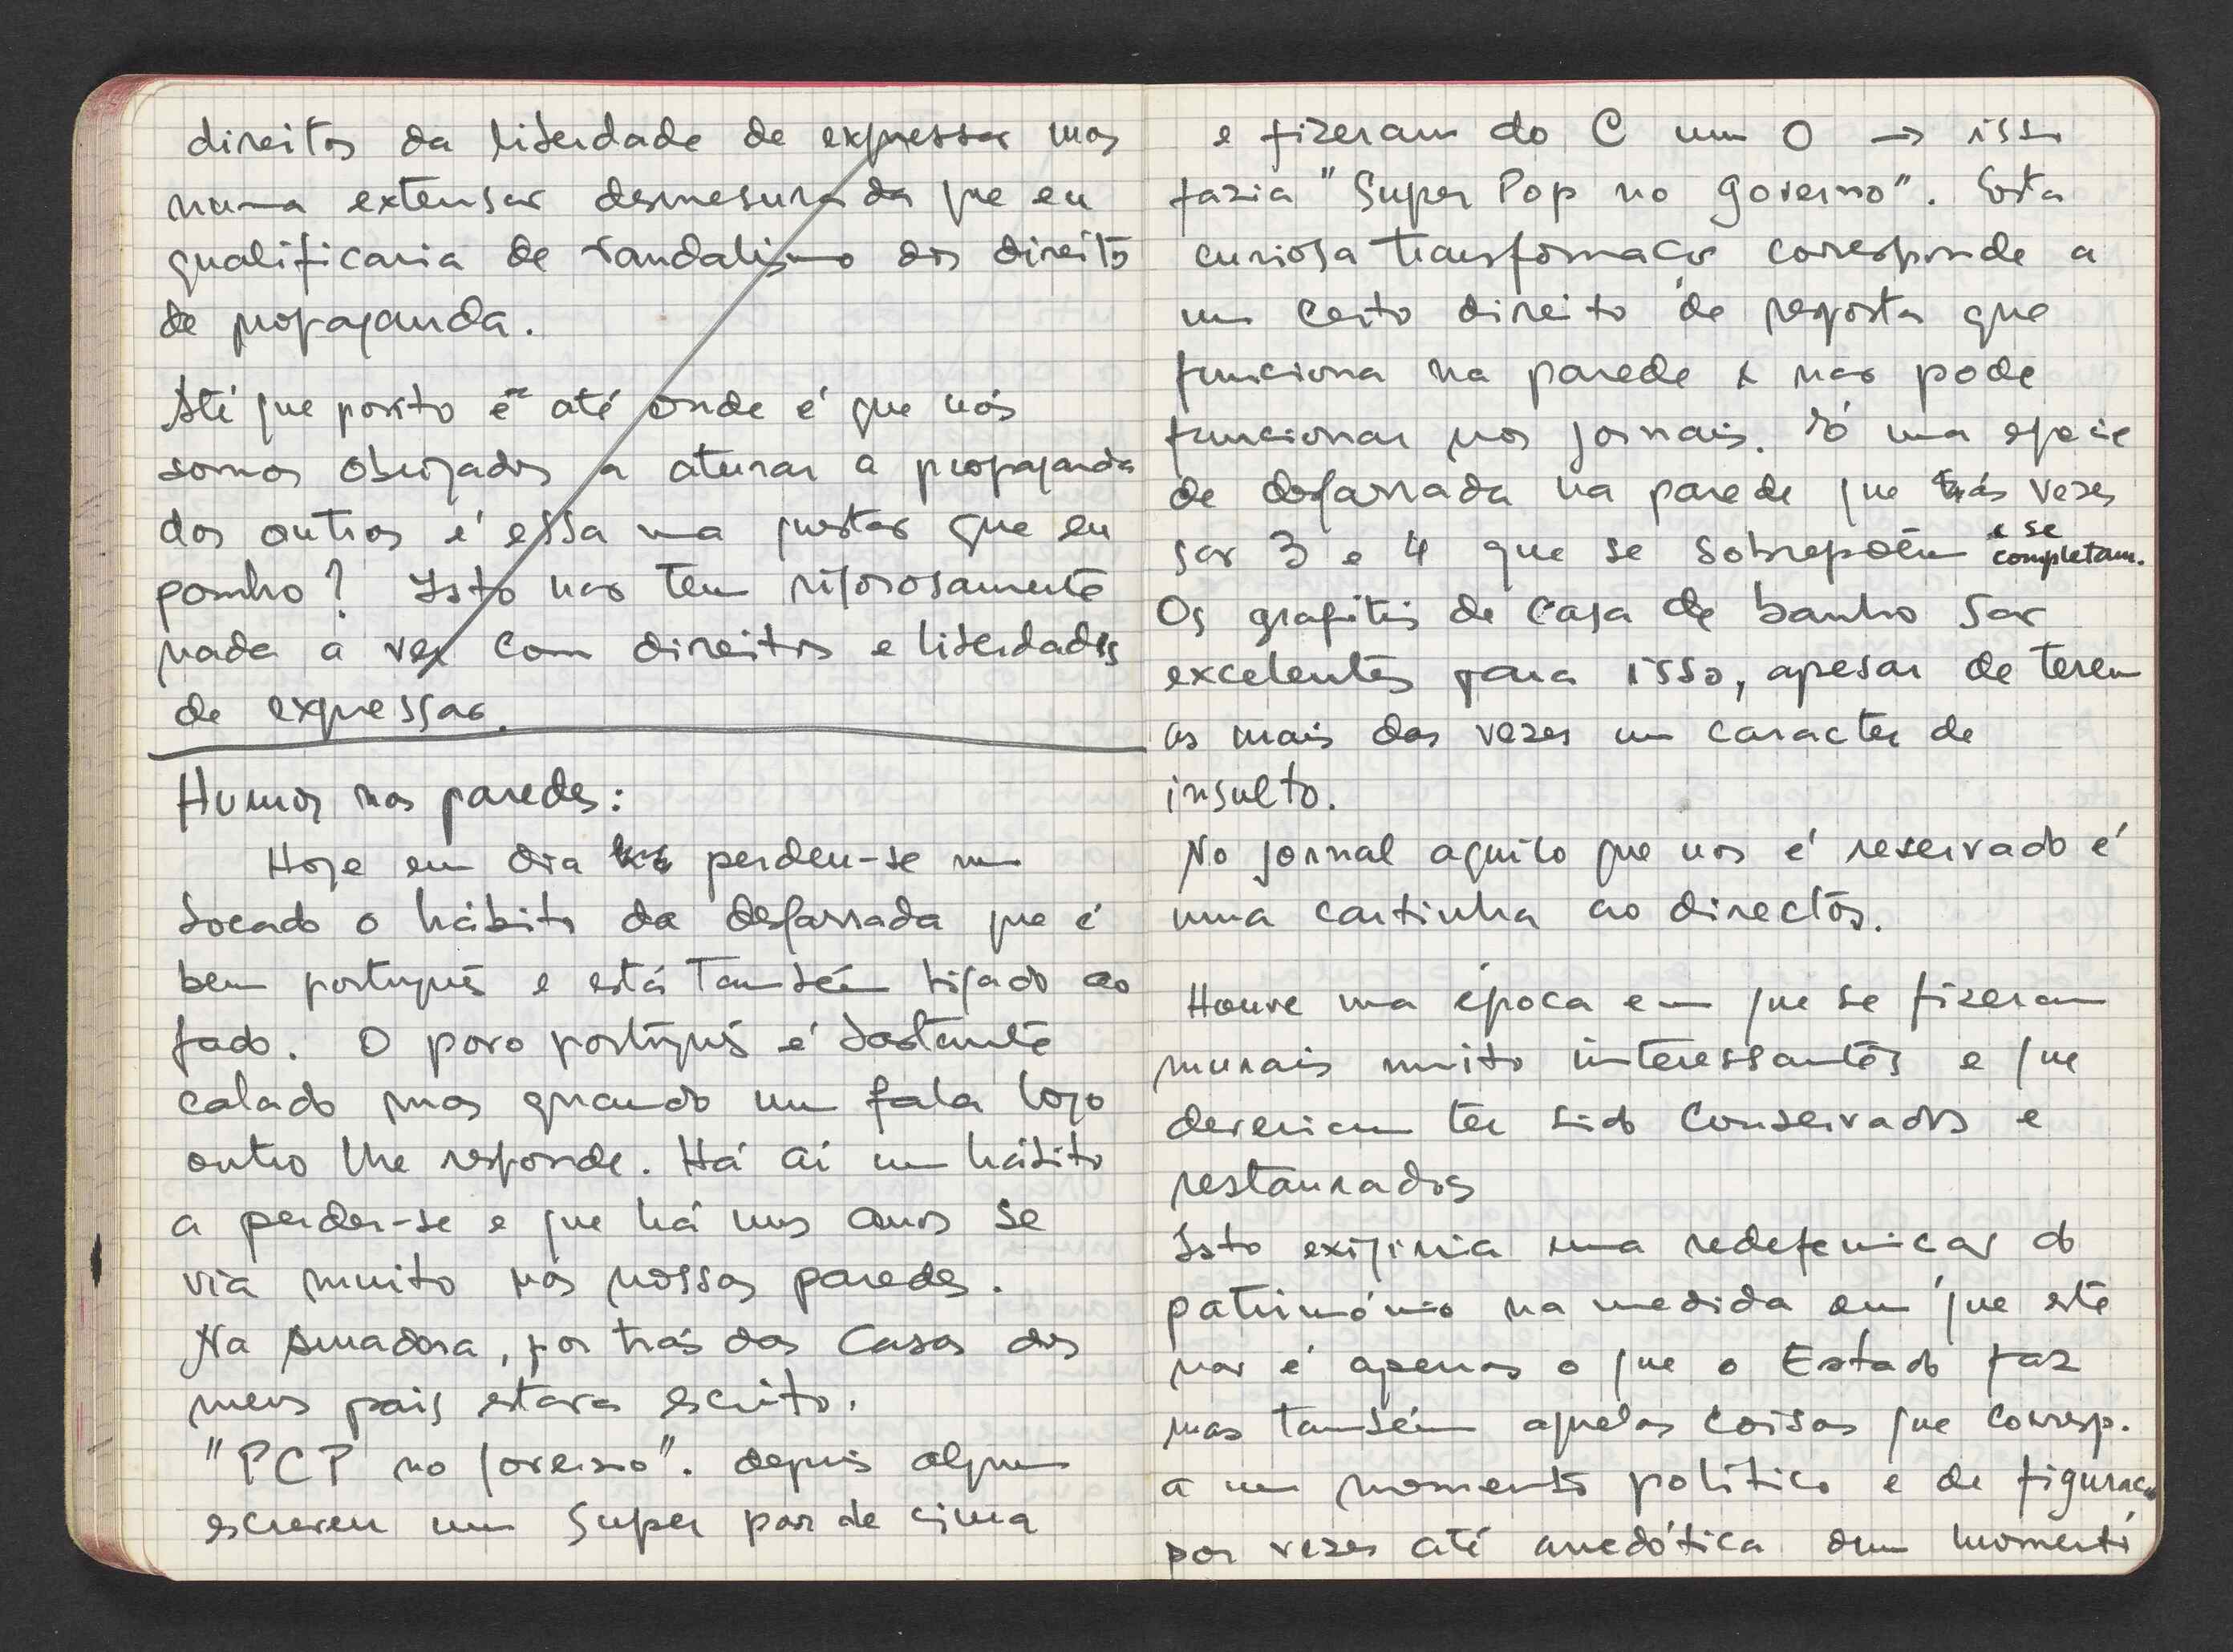 direitos da liberdade de expressão mas
numa extensão desmesurada que eu
qualificaria de vandalismo dos direitos
de propaganda.
Até que ponto é até onde é que nós
somos obrigados a aturar a propaganda
dos outros é essa uma questão que eu
ponho? Isto não tem rigorosamente
nada a ver com direitos e liberdades
de expressão.
Humor nas paredes:
Hoje em dia perdeu-se um
bocado o hábito da desgarrada que é
bem português e está também ligado ao
fado. O povo português é bastante
calado mas quando um fala logo
outro lhe responde. Há aí um hábito
a perder-se e que há uns anos se
via muito nas nossas paredes.
Na Amadora, por trás das casas dos
meus pais estava escrito.
"PCP no governo". depois alguem
escreveu um Super por de cima
e fizeram do C um O → isso
fazia "Super Pop no governo". Esta
curiosa transformação corresponde a
um certo direito de resposta que
funciona na parede e não pode
funcionar nos jornais. É uma espécie
de desgarrada na parede que às vezes
são 3 e 4 que se sobrepõem e se
completam.
Os grafitis de casa de banho são
excelentes para isso, apesar de terem
as mais das vezes um caracter de
insulto.
No jornal aquilo que nos é reservado é
uma cartinha ao director.
Houve uma época em que se fizeram
murais muito interessantes e que
deveriam ter sido conservados e
restaurados
Isto exigiria uma redefenição do
património na medida em que este
não é apenas o que o Estado faz
mas também aquelas coisas que corresp.
a um momento político e de figuração
por vezes até anedótica dum momento